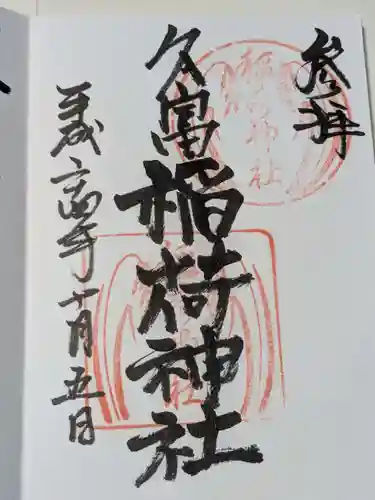 参拝
久富稲荷神社
平成二十六年十月五日
稲荷神社